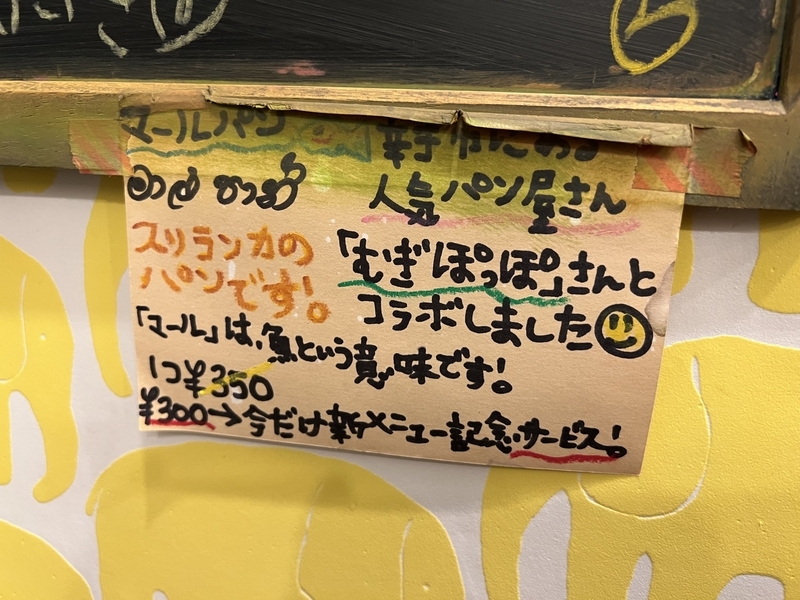 マールパン
මාලු පාන්
スリランカの
パンです。
幸手市にある
人気パン屋さん
「むぎぽっぽ」さんと
コラボしました
「マール」は、魚という意味です!
1コ¥350
¥300→今だけ新メニュー記念サービス!